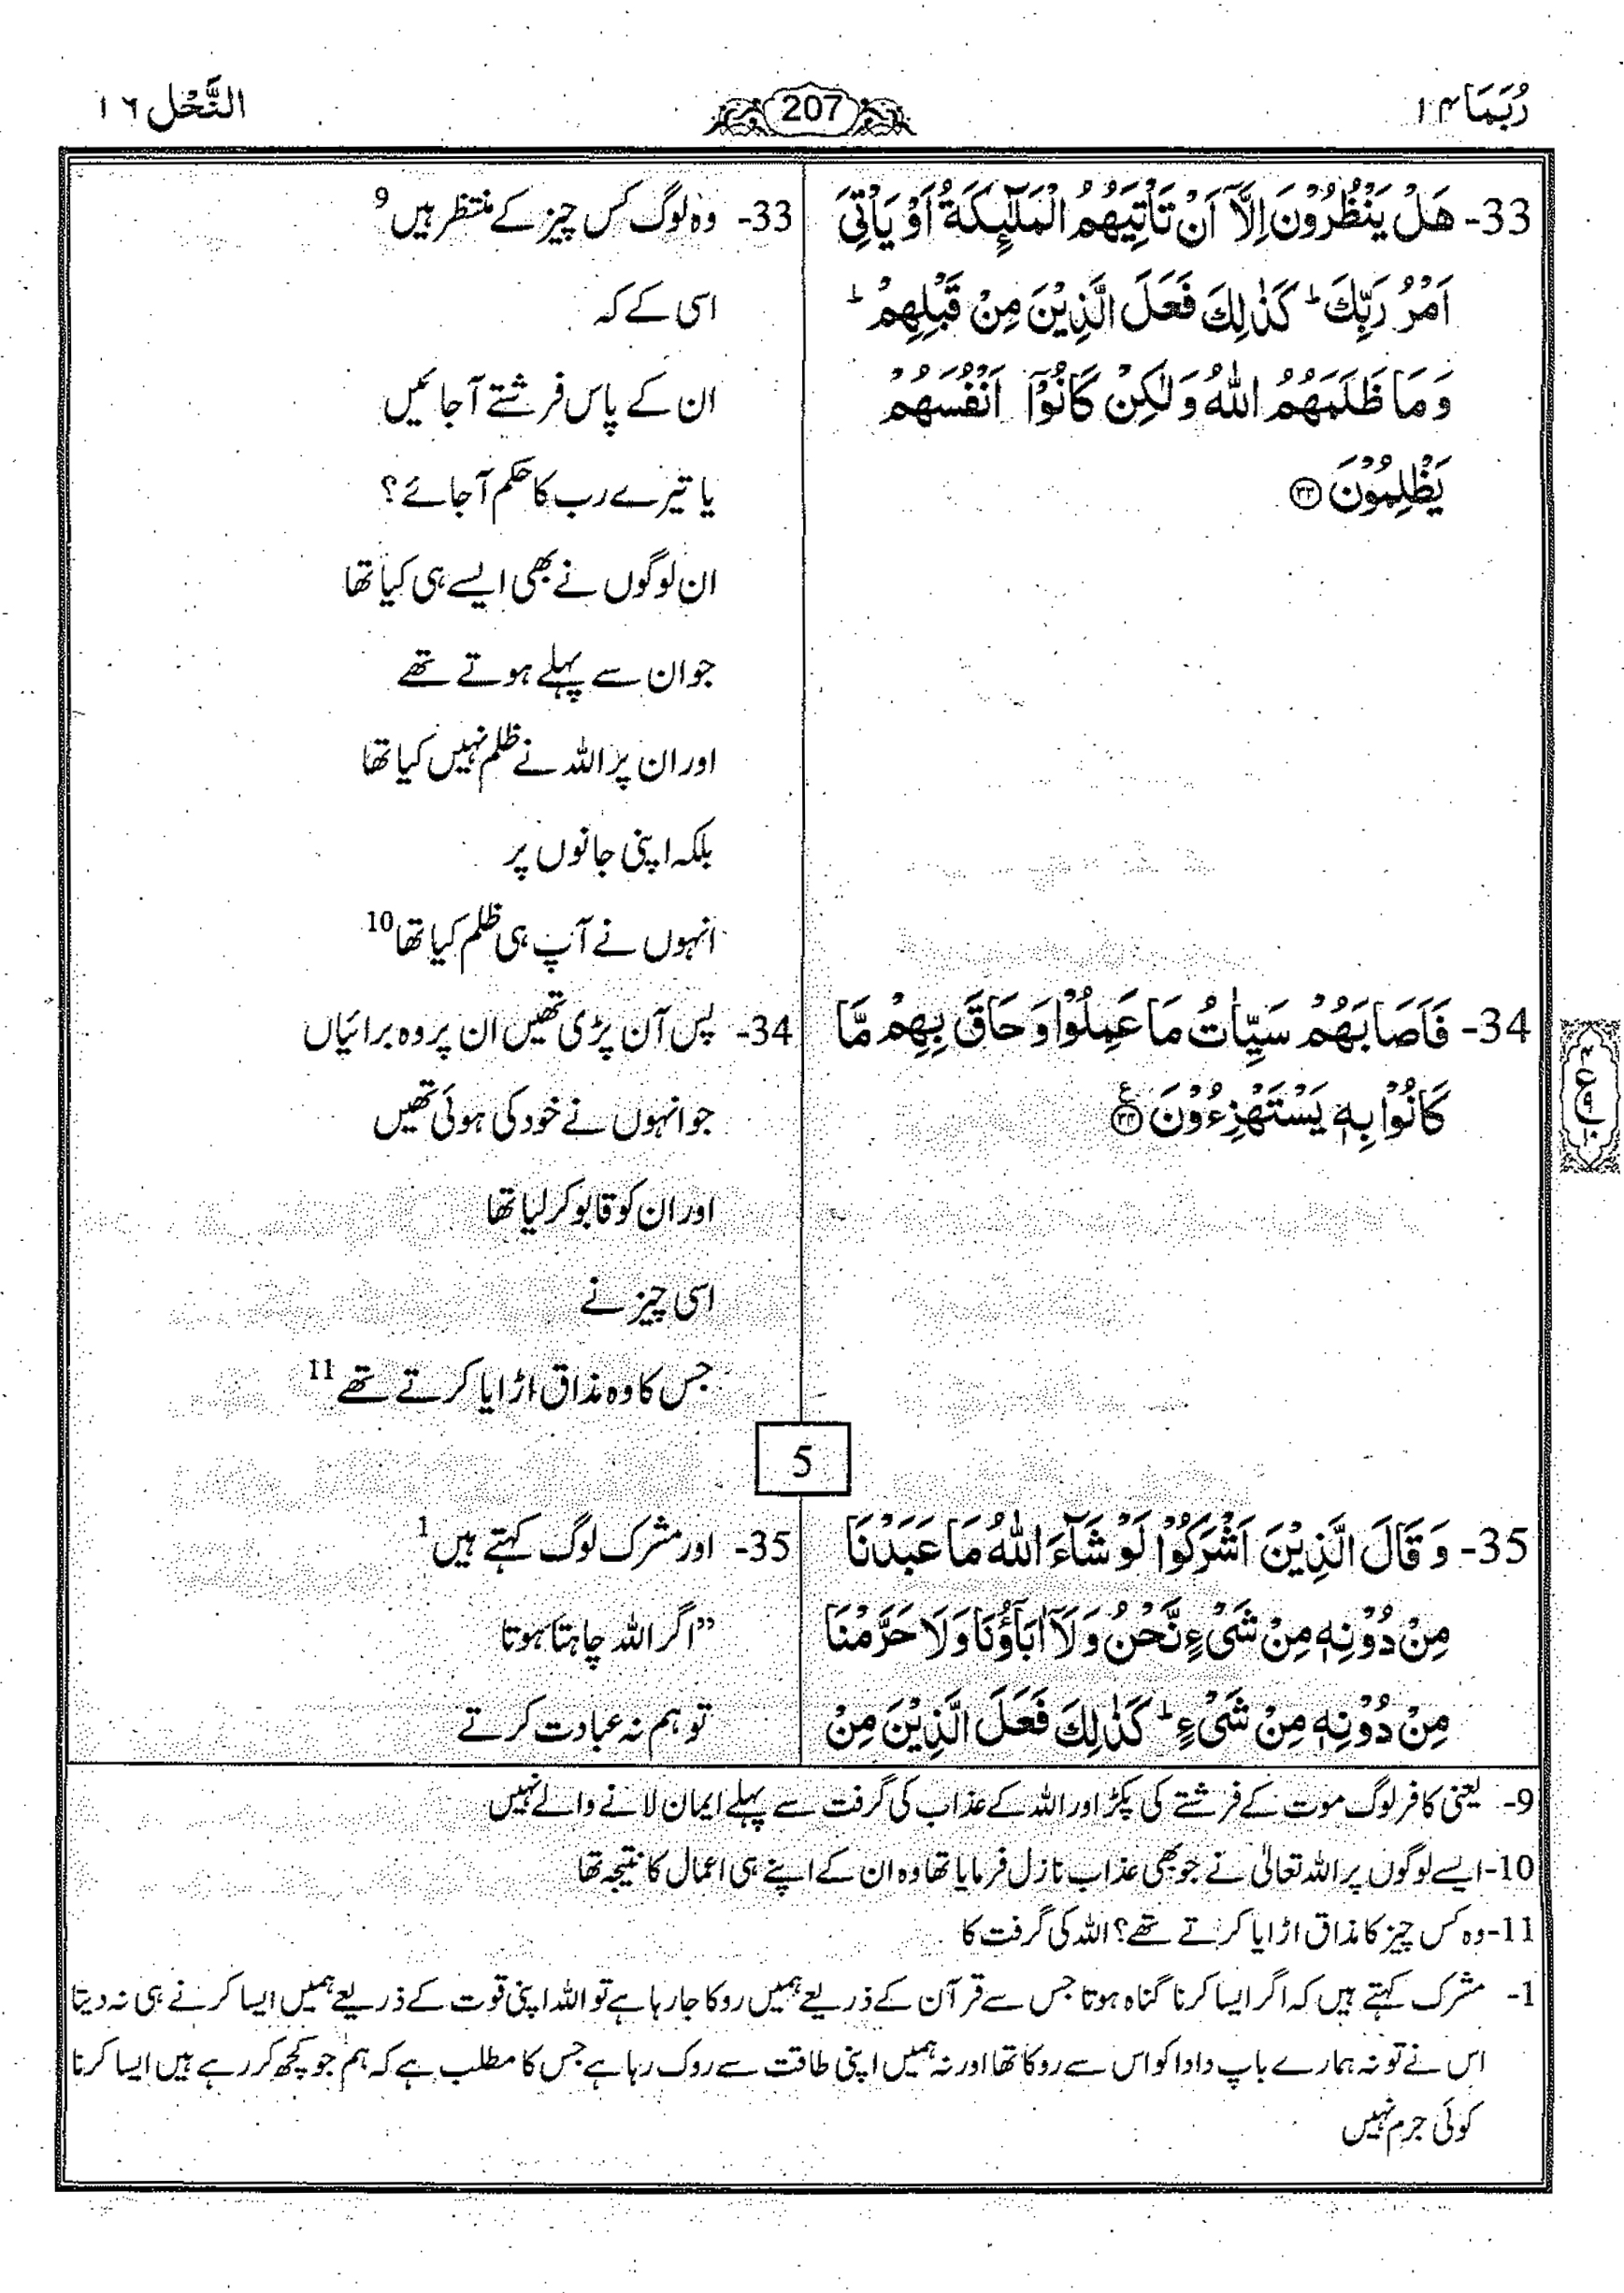 رُبَمَا ۱۴
207
النَّحْل ۱۶
33- هَلْ يَنْظُرُوْنَ اِلَّاۤ اَنْ تَاْتِيَهُمُ الْمَلٰٓئِكَةُ اَوْ يَاْتِيَ
اَمْرُ رَبِّكَ ؕ كَذٰلِكَ فَعَلَ الَّذِيْنَ مِنْ قَبْلِهِمْ ؕ
وَمَا ظَلَمَهُمُ اللّٰهُ وَلٰكِنْ كَانُوْۤا اَنْفُسَهُمْ
يَظْلِمُوْنَ ۝۳۳
33- وہ لوگ کس چیز کے منتظر ہیں 9
اسی کے کہ
ان کے پاس فرشتے آجائیں
یا تیرے رب کا حکم آجائے؟
ان لوگوں نے بھی ایسے ہی کیا تھا
جو ان سے پہلے ہوتے تھے
اور ان پر اللہ نے ظلم نہیں کیا تھا
بلکہ اپنی جانوں پر
انہوں نے آپ ہی ظلم کیا تھا 10
34- فَاَصَابَهُمْ سَيِّاٰتُ مَا عَمِلُوْا وَحَاقَ بِهِمْ مَّا
كَانُوْا بِهٖ يَسْتَهْزِءُوْنَ ۝۳۴ ع
ع ۴ ۹ ۱۰
34- پس آن پڑی تھیں ان پر وہ برائیاں
جو انہوں نے خود کی ہوئی تھیں
اور ان کو قابو کر لیا تھا
اسی چیز نے
جس کا وہ مذاق اڑایا کرتے تھے 11
5
35- وَقَالَ الَّذِيْنَ اَشْرَكُوْا لَوْ شَآءَ اللّٰهُ مَا عَبَدْنَا
مِنْ دُوْنِهٖ مِنْ شَيْءٍ نَّحْنُ وَلَاۤ اٰبَآؤُنَا وَلَا حَرَّمْنَا
مِنْ دُوْنِهٖ مِنْ شَيْءٍ ؕ كَذٰلِكَ فَعَلَ الَّذِيْنَ مِنْ
35- اور مشرک لوگ کہتے ہیں 1
”اگر اللہ چاہتا ہوتا
تو ہم نہ عبادت کرتے
9- یعنی کافر لوگ موت کے فرشتے کی پکڑ اور اللہ کے عذاب کی گرفت سے پہلے ایمان لانے والے نہیں
10- ایسے لوگوں پر اللہ تعالیٰ نے جو بھی عذاب نازل فرمایا تھا وہ ان کے اپنے ہی اعمال کا نتیجہ تھا
11- وہ کس چیز کا مذاق اڑایا کرتے تھے؟ اللہ کی گرفت کا
1- مشرک کہتے ہیں کہ اگر ایسا کرنا گناہ ہوتا جس سے قرآن کے ذریعے ہمیں روکا جا رہا ہے تو اللہ اپنی قوت کے ذریعے ہمیں ایسا کرنے ہی نہ دیتا
اس نے تو نہ ہمارے باپ دادا کو اس سے روکا تھا اور نہ ہمیں اپنی طاقت سے روک رہا ہے جس کا مطلب ہے کہ ہم جو کچھ کر رہے ہیں ایسا کرنا
کوئی جرم نہیں